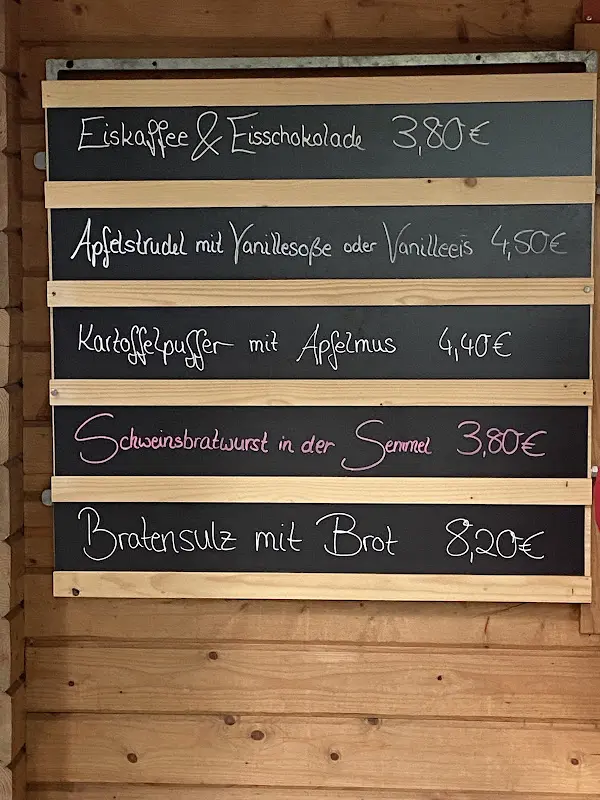 Eiskaffee & Eisschokolade 3,80€
Apfelstrudel mit Vanillesoße oder Vanilleeis 4,50€
Kartoffelpuffer mit Apfelmus 4,40€
Schweinsbratwurst in der Semmel 3,80€
Bratensulz mit Brot 8,20€